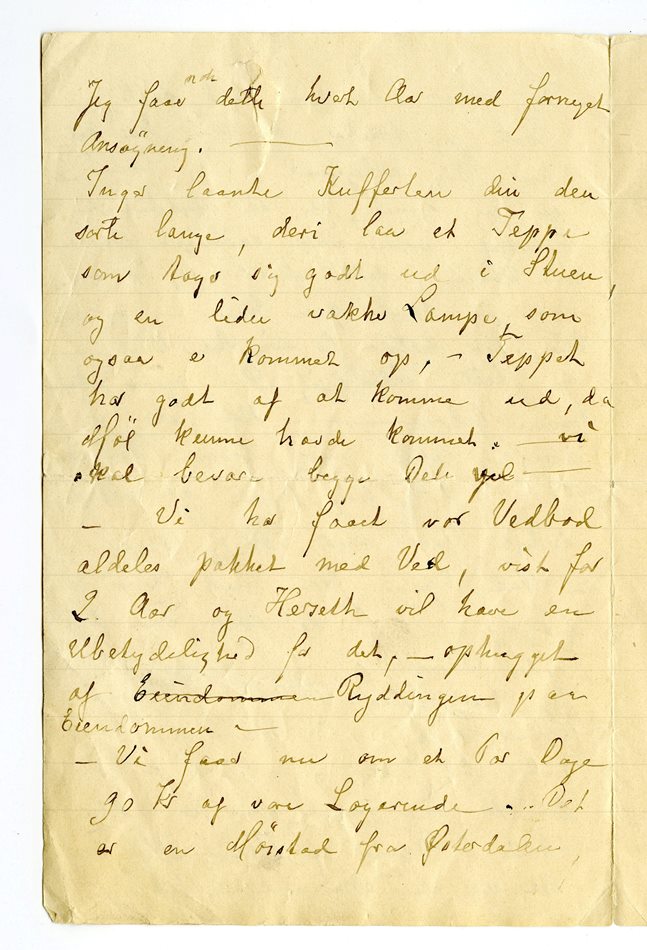 Jeg faar nok dette hvert Aar med fornyet
Ansøgning. —
Inga laante Kufferten din den
sorte lange, deri laa et Teppe
som tager sig godt ud i Stuen,
og en liden vakker Lampe, som
ogsaa er kommet op, – Teppet
har godt af at komme ud, da
Møl kunne havde kommet. — vi
skal bevare begge Dele vel —
– Vi har faaet vor Vedbod
aldeles pakket med Ved, vist for
2 Aar og Herseth vil have en
Ubetydelighed for det, – ophugget
af Eiendommen Ryddingen paa
Eiendommen –
– Vi faar nu om et Par Dage
90 Kr af vore Logerende ... Det
er en Mørstad fra Østerdalen,